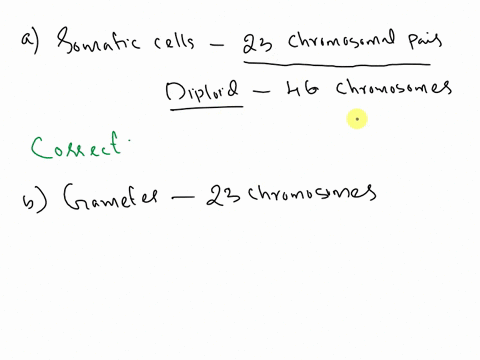 a) Somatic cells - 23 Chromosomal pairs
Diploid - 46 Chromosomes
Correct.
b) Gametes - 23 chromosomes